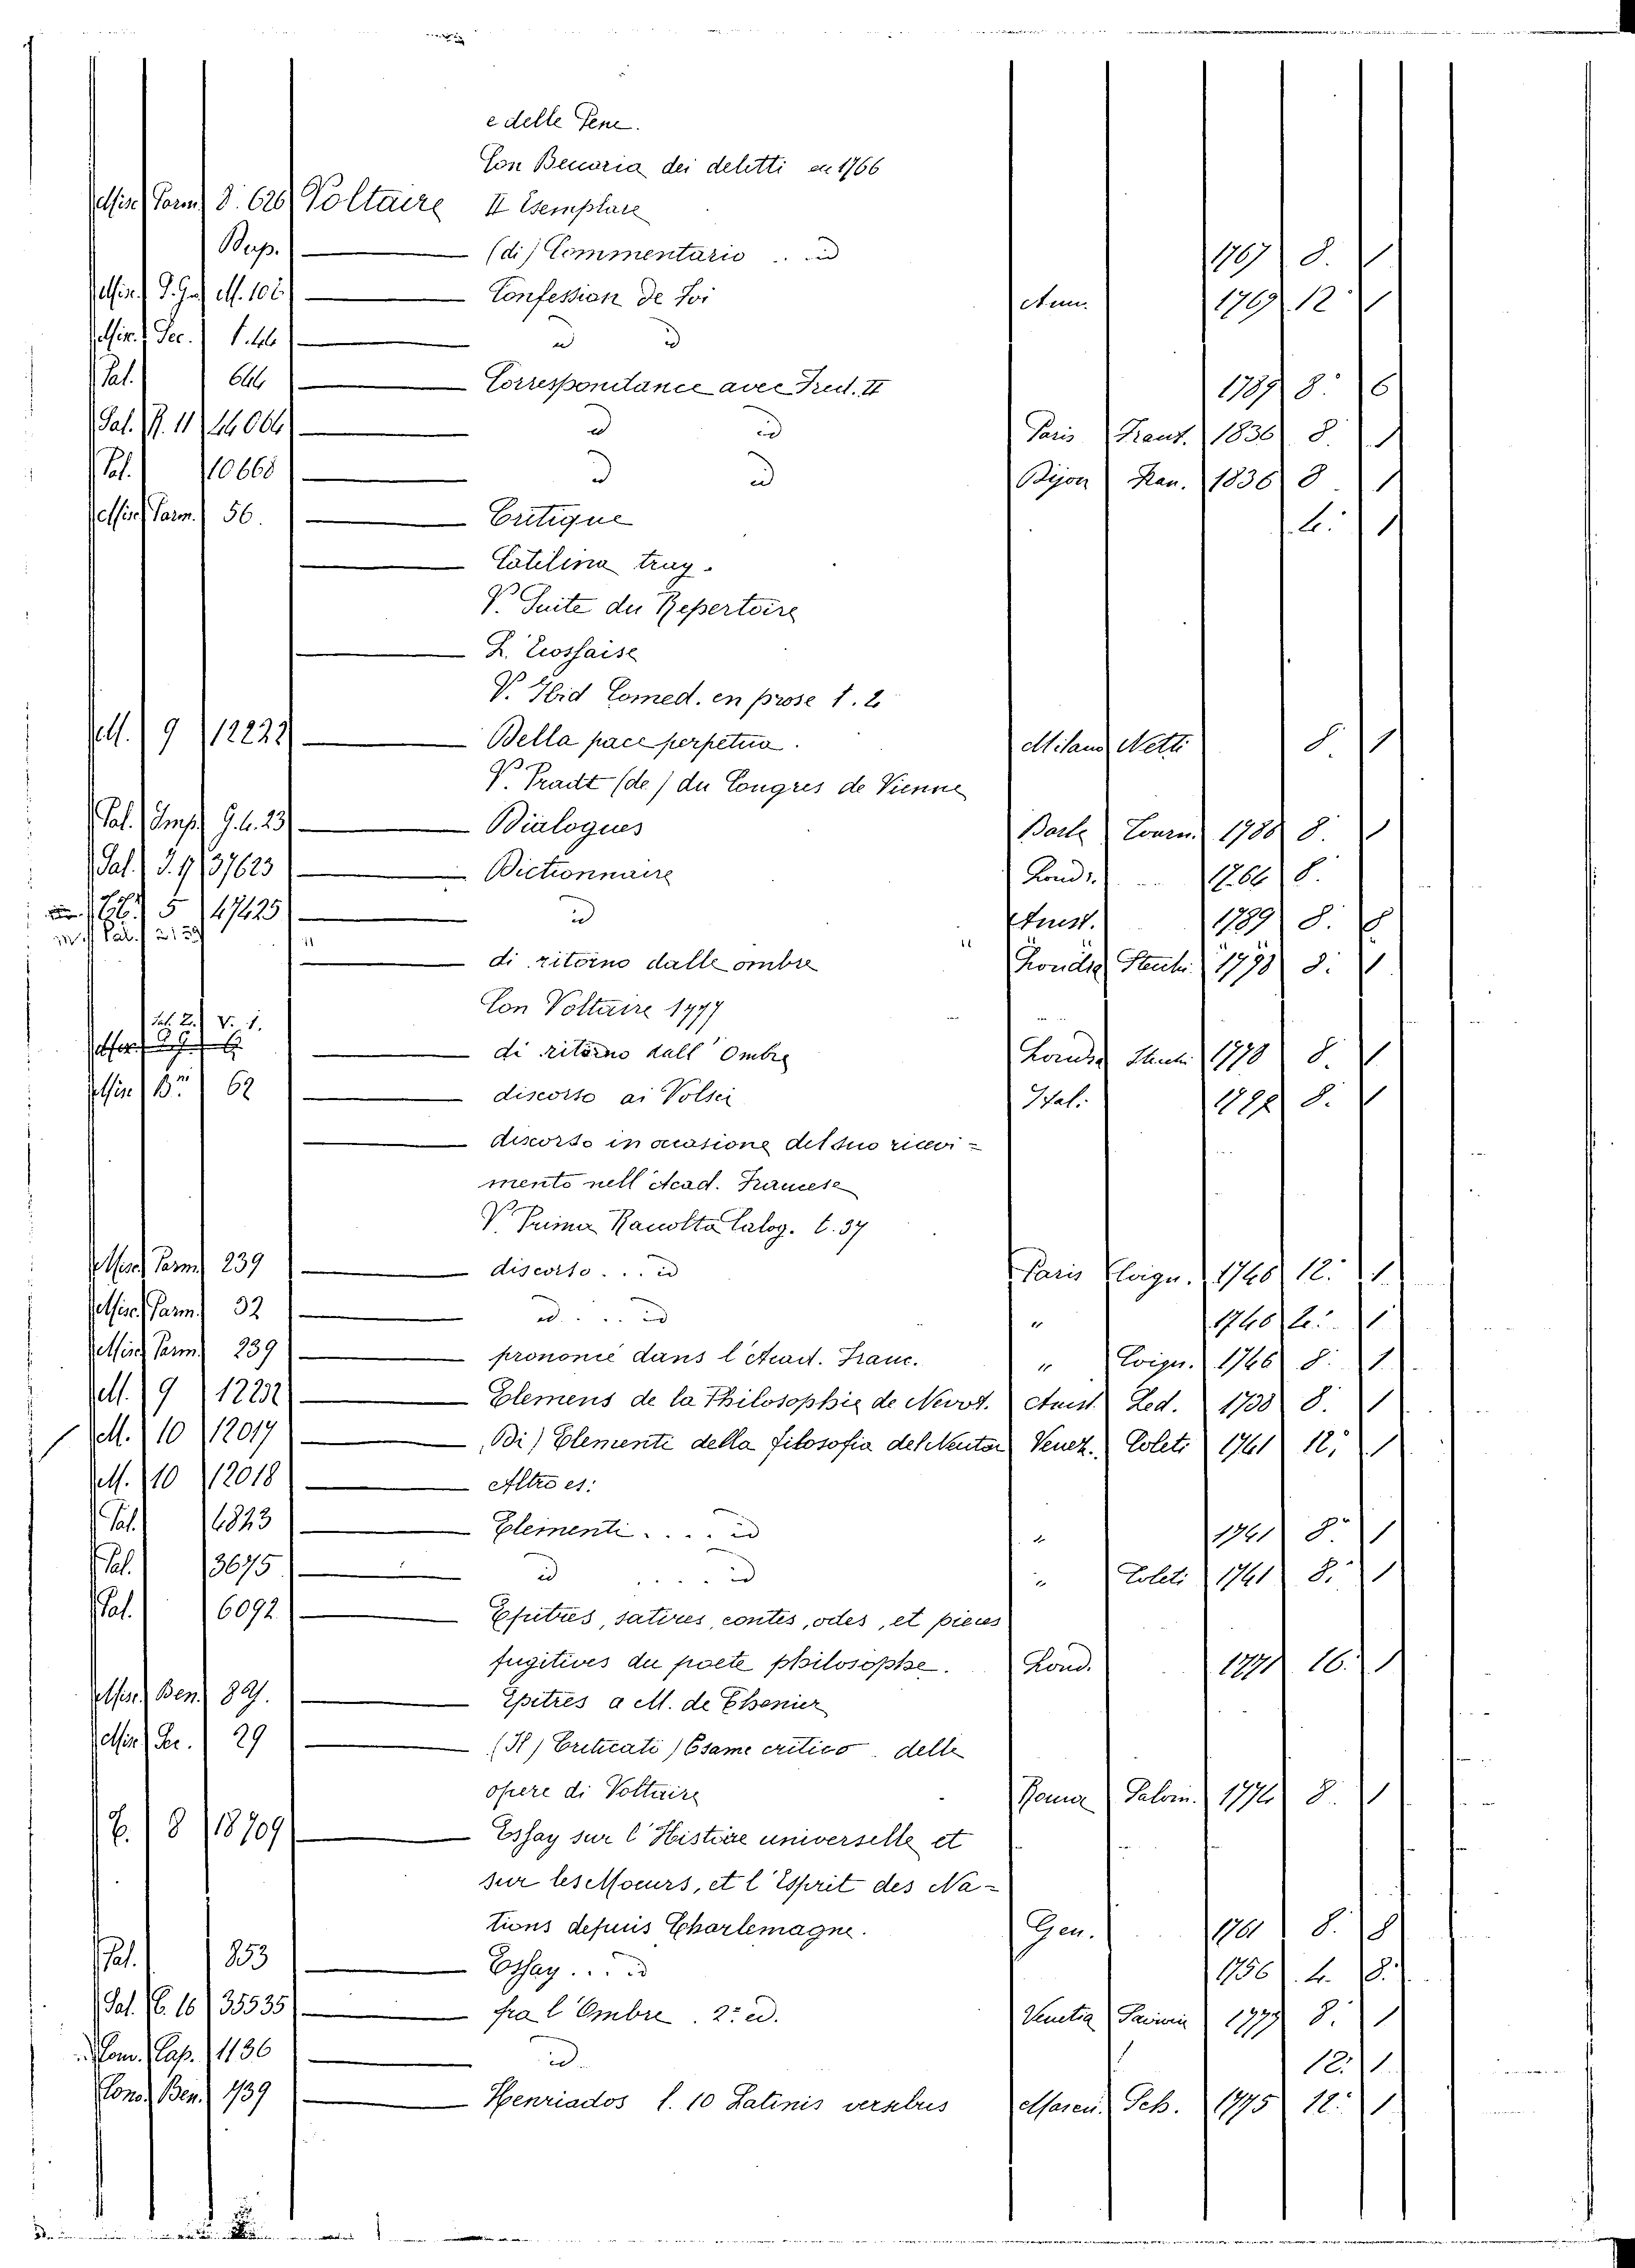 e delle Pene.
Con Beccaria dei deletti en 1766
Misc. Parm. 8. 626 Voltaire II Esemplare
Dup. (di) Commentario .. id 1767 8. 1
Misc. M. 106 Confession de Foi Am. 1769 12 1
Misc. Sec. id id
Pal. 644 Correspondance avec Fred. II 1789 8. 6
Pal. R. 11 44064 id id Paris Traut. 1836 8. 1
Pal. 10668 id id Dijon 1836 8 1
Misc. Parm. 56. Critique 4. 1
Catilina trag.
V. Suite du Repertoire
L. Ecossaise
V. Ibid Comed. en prose t. 2
M. 9 12222 Della pace perpetua. Milano Netti 8. 1
V. Pradt (de) du Congres de Vienne
Pal. Imp. G. 6. 23 Dialogues Basle Tourn. 1788 8.
Pal. 37623 Dictionnaire Lond. 1764 8.
5 47425 id Amst. 1789 8. 8
di ritorno dalle ombre Londra 1778 8. 1
Con Voltaire 1777
V. 1.
di ritorno dall' Ombre Londra 1778 8. 1
Misc. 62 discorso ai Volsci Ital. 8. 1
discorso in occasione del suo ricevi-
mento nell Acad. Francese
V. Prima Raccolta Calog. t. 37
Misc. Parm. 239 discorso ... id Paris Coign. 1746 12. 1
Misc. Parm. 32 id .... id " 1746 4. 1
Misc. Parm. 239 prononcé dans l'Acad. Franc. " Coign. 1746 8. 1
M. 9 12232 Elemens de la Philosophie de Newt. Amst. Led. 1738 8. 1
M. 10 12017 (Di) Elementi della filosofia del Neuton Venez. Coleti 1741 12. 1
M. 10 12018 Altro es:
Pal. 4823 Elementi .... id " 1741 8. 1
Pal. 3675 id .... id " Coleti 1741 8. 1
Pal. 6092 Epitres, satires, contes, odes, et pieces
fugitives du poete philosophe. Lond. 1771 16. 1
Misc. Ben. 89. Epitres a M. de Chenier
Misc. Sec. 29 (II) Criticati) Esame critico delle
opere di Voltaire Roma Salvin. 8. 1
E. 8 18709 Essay sur l'Histoire universelle et
sur les Moeurs, et l'Esprit des Na-
tions depuis Charlemagne. Gen. 1761 8. 8
Pal. 853 Essay ... id 1756 4. 8.
Pal. E. 16 35535 fra l'Ombre. 2: ed. Venetia 1779 8. 1
Com. Cap. 1136 id. 12. 1
Cono. Ben. 1739 Henriados l. 10 Latinis versibus Seb. 1775 12. 1